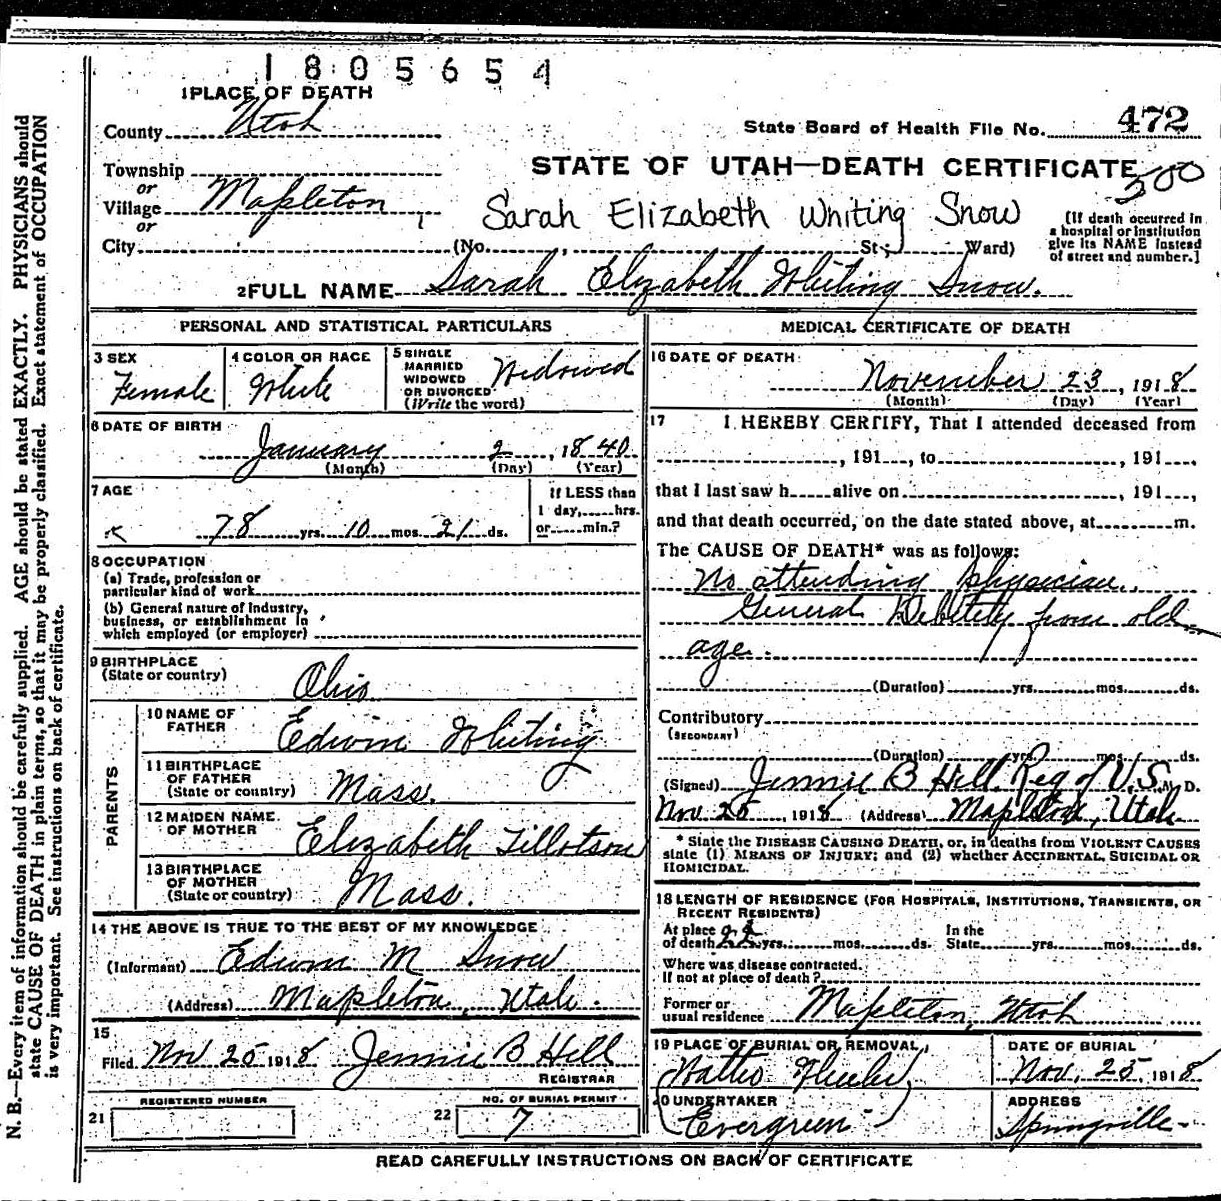 1805654
1 PLACE OF DEATH
County Utah
State Board of Health File No. 472
STATE OF UTAH—DEATH CERTIFICATE
200
Township
or
Village Mapleton
or
City
Sarah Elizabeth Whiting Snow
(No. , St.; Ward)
(If death occurred in
a hospital or institution
give its NAME instead
of street and number.]
2 FULL NAME Sarah Elizabeth Whiting Snow.
PERSONAL AND STATISTICAL PARTICULARS
3 SEX
Female
4 COLOR OR RACE
White
5 SINGLE
MARRIED
WIDOWED
OR DIVORCED
(Write the word)
Widowed
6 DATE OF BIRTH
January 2, 1840
(Month) (Day) (Year)
7 AGE
78 yrs. 10 mos. 21 ds.
If LESS than
1 day, hrs.
or min.?
8 OCCUPATION
(a) Trade, profession or
particular kind of work
(b) General nature of industry,
business, or establishment in
which employed (or employer)
9 BIRTHPLACE
(State or country)
Ohio
PARENTS
10 NAME OF
FATHER
Edwin Whiting
11 BIRTHPLACE
OF FATHER
(State or country)
Mass.
12 MAIDEN NAME
OF MOTHER
Elizabeth Tillotson
13 BIRTHPLACE
OF MOTHER
(State or country)
Mass.
14 THE ABOVE IS TRUE TO THE BEST OF MY KNOWLEDGE
(Informant) Edwin M Snow
(Address) Mapleton, Utah.
15
Filed Nov 25 1918 Jennie B Hill
REGISTRAR
21
REGISTERED NUMBER
22
NO. OF BURIAL PERMIT
7
MEDICAL CERTIFICATE OF DEATH
16 DATE OF DEATH
November 23, 1918
(Month) (Day) (Year)
17 I HEREBY CERTIFY, That I attended deceased from
, 191 , to , 191 ,
that I last saw h alive on , 191 ,
and that death occurred, on the date stated above, at m.
The CAUSE OF DEATH* was as follows:
No attending physician.
General Debility from old
age.
(Duration) yrs. mos. ds.
Contributory
(SECONDARY)
(Duration) yrs. mos. ds.
(Signed) Jennie B Hill Reg of V.S. M.D.
Nov 25, 1918 (Address) Mapleton, Utah
* State the DISEASE CAUSING DEATH, or, in deaths from VIOLENT CAUSES
state (1) MEANS OF INJURY; and (2) whether ACCIDENTAL, SUICIDAL OR
HOMICIDAL.
18 LENGTH OF RESIDENCE (FOR HOSPITALS, INSTITUTIONS, TRANSIENTS, OR
RECENT RESIDENTS)
At place
of death yrs. mos. ds.
In the
State yrs. mos. ds.
Where was disease contracted.
If not at place of death?
Former or
usual residence Mapleton, Utah
19 PLACE OF BURIAL OR REMOVAL
Evergreen
DATE OF BURIAL
Nov. 25, 1918
20 UNDERTAKER
ADDRESS
Springville
READ CAREFULLY INSTRUCTIONS ON BACK OF CERTIFICATE
N. B.—Every item of information should be carefully supplied. AGE should be stated EXACTLY. PHYSICIANS should
state CAUSE OF DEATH in plain terms, so that it may be properly classified. Exact statement of OCCUPATION
is very important. See instructions on back of certificate.